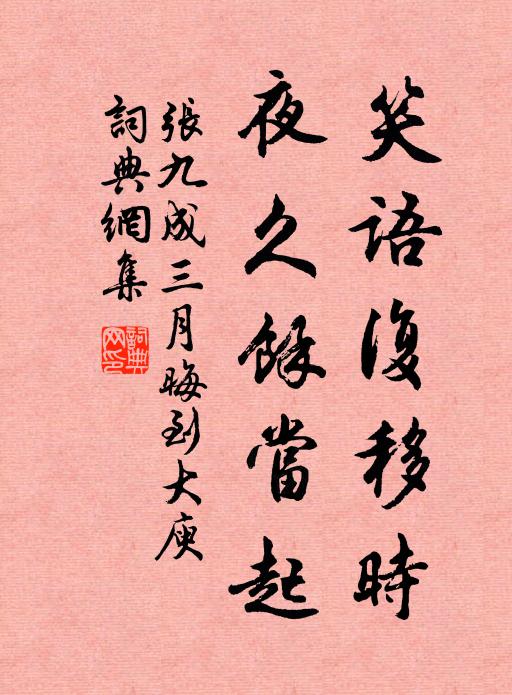 笑語復移時
夜久餘當起
張九成三月晦到大庾
詞典網集
詞典網印